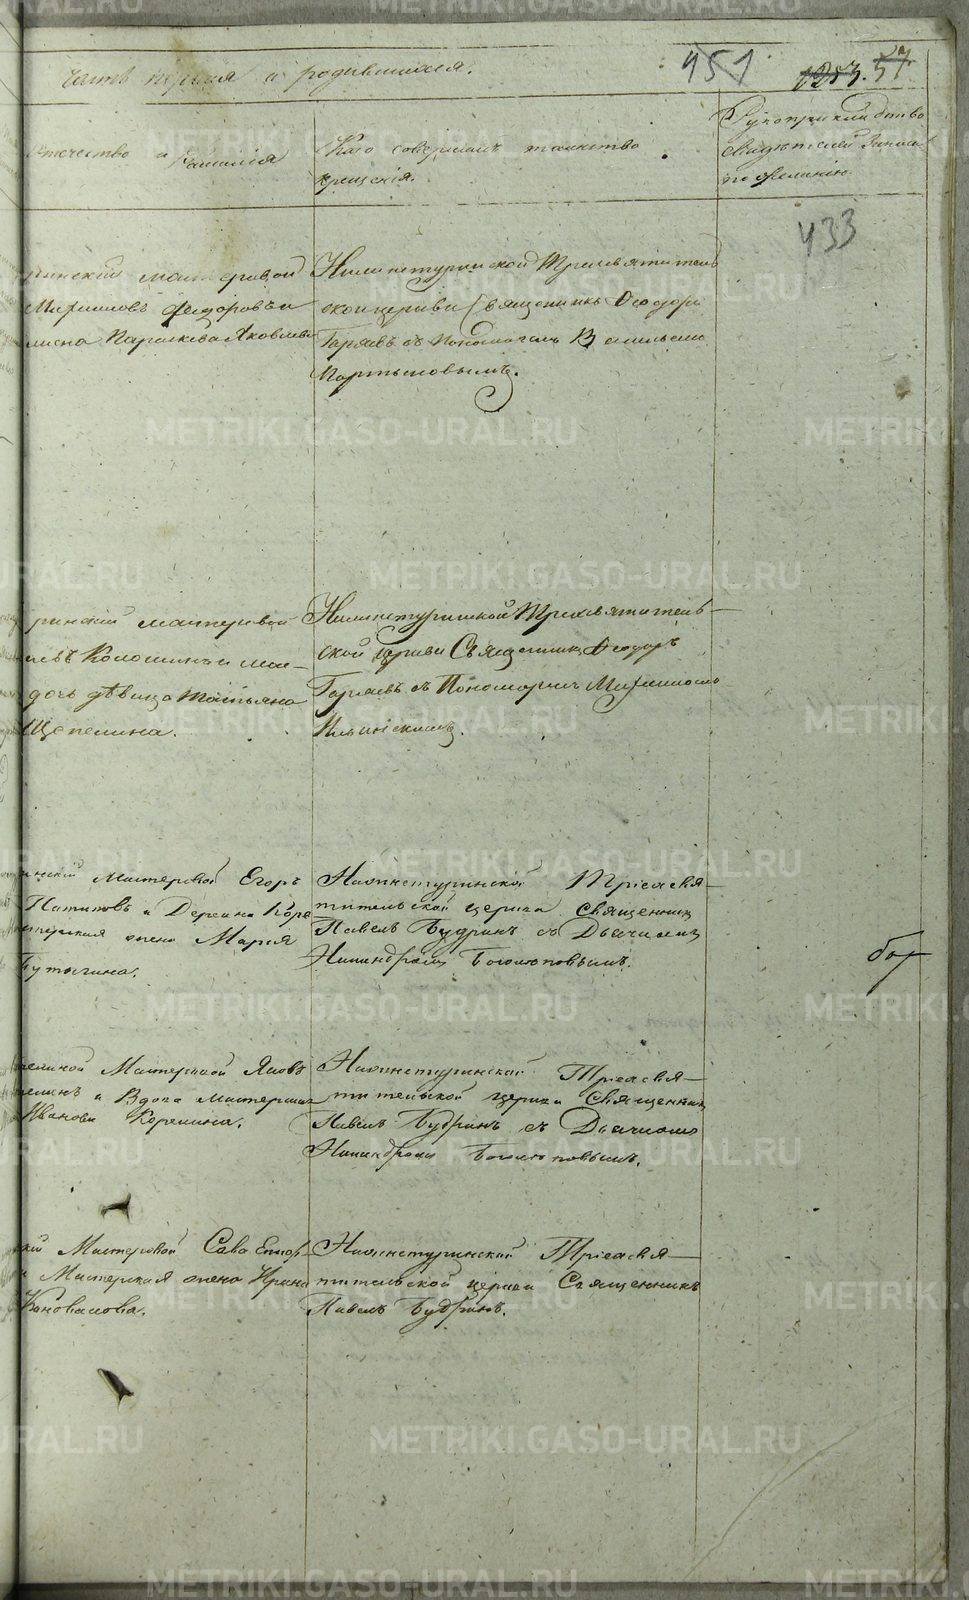 Часть первая о родившихся.
451
1253. 57
отечество и фамилія
Кто совершалъ таинство
крещенія.
Рукоприкладство
свидѣтелей записи
по желанію.
433
мастеровой
Ѳедоровъ и
Параскева Яковлева
Нижнетуринской Трехсвятитель
ской церкви Священникъ Ѳеодоръ
Гаряевъ съ Пономаремъ
Мартыновымъ.
мастеровой
Колошинъ и мас-
дочь дѣвица Татьяна
Щепелина.
Нижнетуринской Трехсвятитель-
ской церкви Священникъ Ѳеодоръ
Гаряевъ съ Пономаремъ
Ильинскимъ.
Мастеровой Егоръ
и
жена Марія
Бутыгина.
Нижнетуринской Трехсвя-
тительской церкви Священникъ
Павелъ Будринъ съ Дьячкомъ
Никандромъ Боголюповымъ.
бат
Мастеровой Яковъ
и Вдова мастерская
Иванова Корелина.
Нижнетуринской Трехсвя-
тительской церкви Священникъ
Павелъ Будринъ съ Дьячкомъ
Никандромъ Боголюповымъ.
Мастеровой Сава
Мастерская жена Ирина
Коновалова.
Нижнетуринской Трехсвя-
тительской церкви Священникъ
Павелъ Будринъ.
METRIKI.GASO-URAL.RU